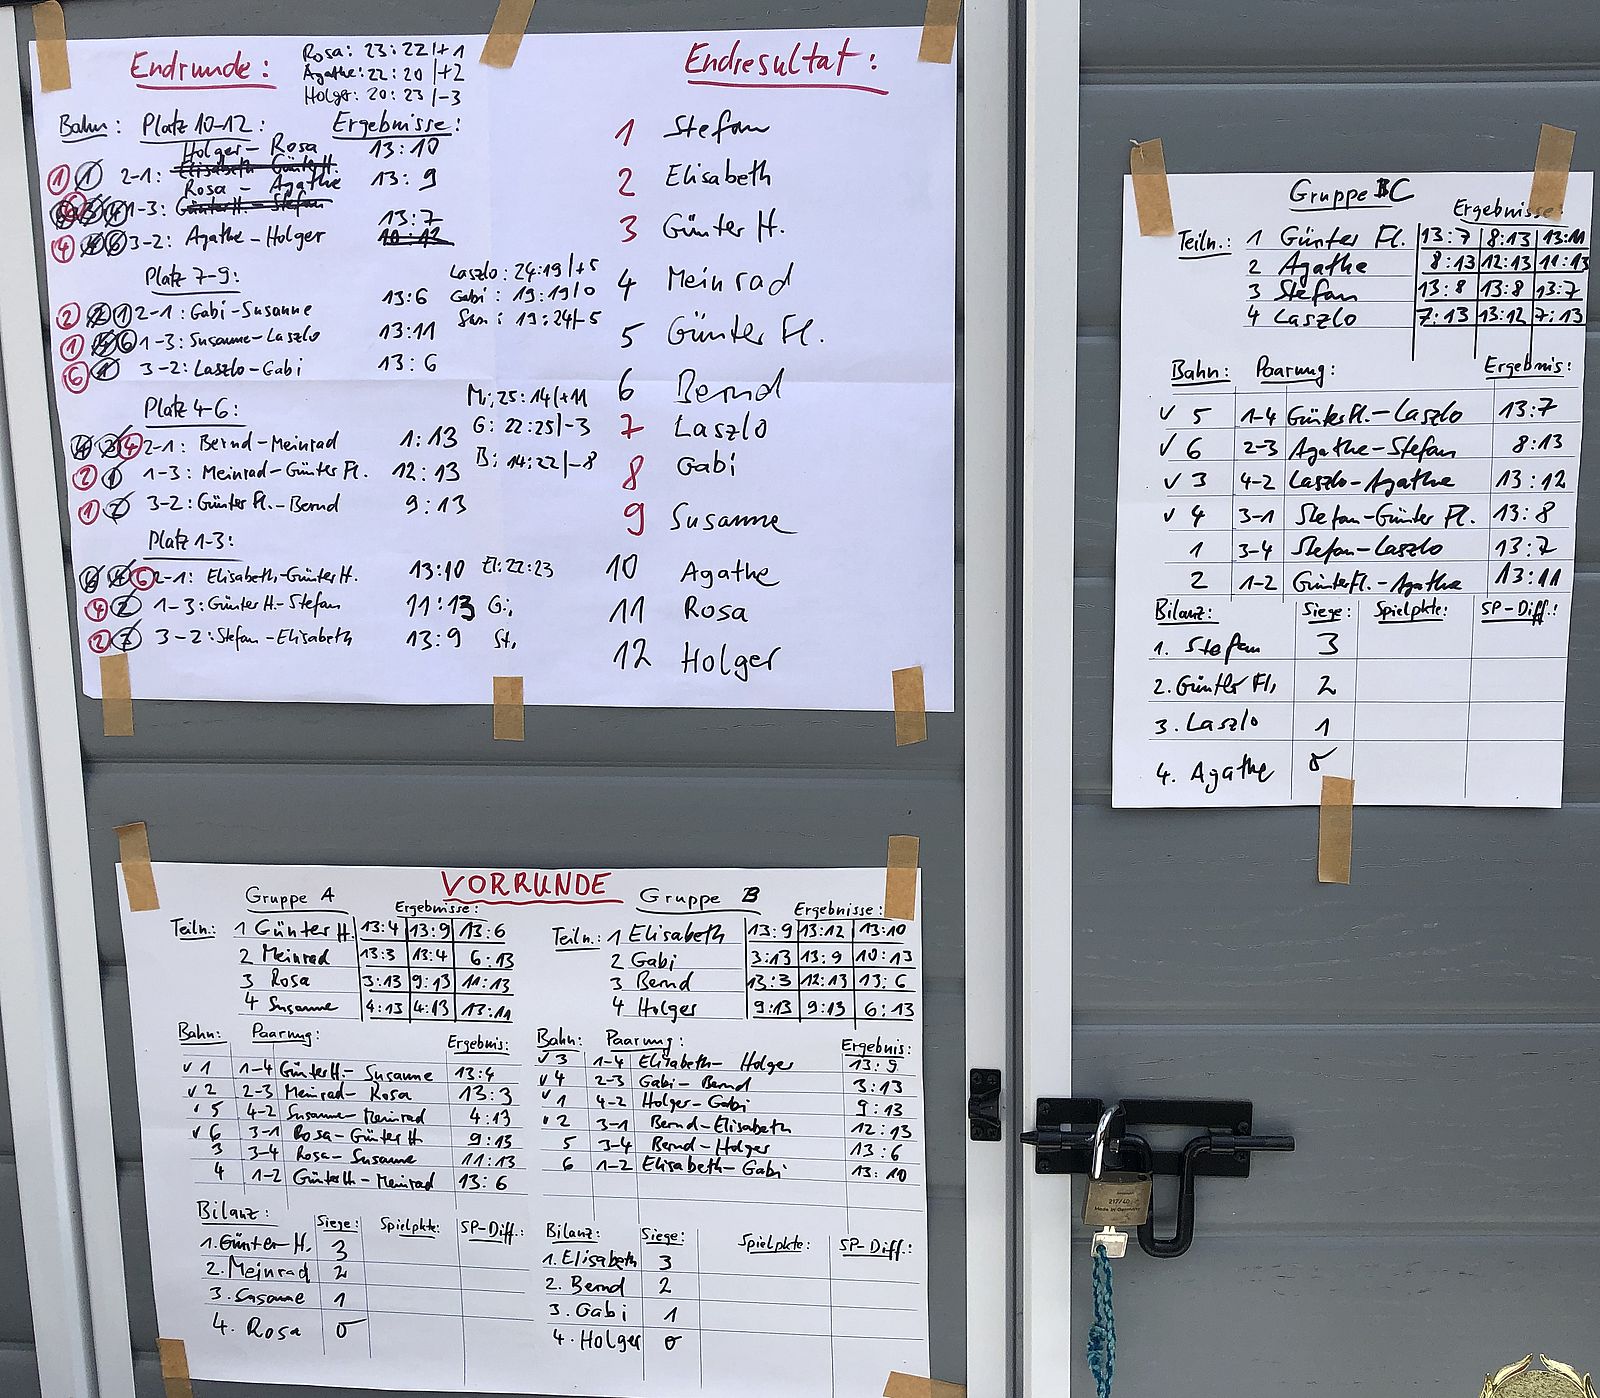 Endrunde:
Rosa: 23:22/+1
Agathe: 22:20/+2
Holger: 20:23/-3
Bahn: Platz 10-12: Ergebnisse:
Holger - Rosa 13:10
1 1 2-1: Elisabeth - Günter H.
Rosa - Agathe 13:9
4 1-3: Günter H. - Stefan
13:7
4 6 3-2: Agathe - Holger 10:12
Platz 7-9:
Laszlo: 24:19/+5
Gabi: 19:19/0
Sus: 19:24/-5
2 2 1 2-1: Gabi - Susanne 13:6
1 6 1-3: Susanne - Laszlo 13:11
6 1 3-2: Laszlo - Gabi 13:6
Platz 4-6:
M: 25:14/+11
G: 22:25/-3
B: 14:22/-8
4 3 4 2-1: Bernd - Meinrad 1:13
2 1 1-3: Meinrad - Günter Fl. 12:13
1 2 3-2: Günter Fl. - Bernd 9:13
Platz 1-3:
6 4 6 2-1: Elisabeth - Günter H. 13:10 El: 22:23
4 2 1-3: Günter H. - Stefan 11:13 G:
2 7 3-2: Stefan - Elisabeth 13:9 St.
Endresultat:
1 Stefan
2 Elisabeth
3 Günter H.
4 Meinrad
5 Günter Fl.
6 Bernd
7 Laszlo
8 Gabi
9 Susanne
10 Agathe
11 Rosa
12 Holger
Gruppe C
Ergebnisse:
Teiln.: 1 Günter Fl. 13:7 8:13 13:11
2 Agathe 8:13 12:13 11:13
3 Stefan 13:8 13:8 13:7
4 Laszlo 7:13 13:12 7:13
Bahn: Paarung: Ergebnis:
✓ 5 1-4 Günter Fl. - Laszlo 13:7
✓ 6 2-3 Agathe - Stefan 8:13
✓ 3 4-2 Laszlo - Agathe 13:12
✓ 4 3-1 Stefan - Günter Fl. 13:8
1 3-4 Stefan - Laszlo 13:7
2 1-2 Günter Fl. - Agathe 13:11
Bilanz: Siege: Spielpkte: SP-Diff.:
1. Stefan 3
2. Günter Fl. 2
3. Laszlo 1
4. Agathe 0
VORRUNDE
Gruppe A
Ergebnisse:
Teiln.: 1 Günter H. 13:4 13:9 13:6
2 Meinrad 13:3 13:4 6:13
3 Rosa 3:13 9:13 11:13
4 Susanne 4:13 4:13 13:11
Bahn: Paarung: Ergebnis:
✓ 1 1-4 Günter H. - Susanne 13:4
✓ 2 2-3 Meinrad - Rosa 13:3
✓ 5 4-2 Susanne - Meinrad 4:13
✓ 6 3-1 Rosa - Günter H. 9:13
3 3-4 Rosa - Susanne 11:13
4 1-2 Günter H. - Meinrad 13:6
Bilanz: Siege: Spielpkte: SP-Diff.:
1. Günter H. 3
2. Meinrad 2
3. Susanne 1
4. Rosa 0
Gruppe B
Ergebnisse:
Teiln.: 1 Elisabeth 13:9 13:12 13:10
2 Gabi 3:13 13:9 10:13
3 Bernd 13:3 12:13 13:6
4 Holger 9:13 9:13 6:13
Bahn: Paarung: Ergebnis:
✓ 3 1-4 Elisabeth - Holger 13:9
✓ 4 2-3 Gabi - Bernd 3:13
✓ 1 4-2 Holger - Gabi 9:13
✓ 2 3-1 Bernd - Elisabeth 12:13
5 3-4 Bernd - Holger 13:6
6 1-2 Elisabeth - Gabi 13:10
Bilanz: Siege: Spielpkte: SP-Diff.:
1. Elisabeth 3
2. Bernd 2
3. Gabi 1
4. Holger 0
217/40
Made in Germany